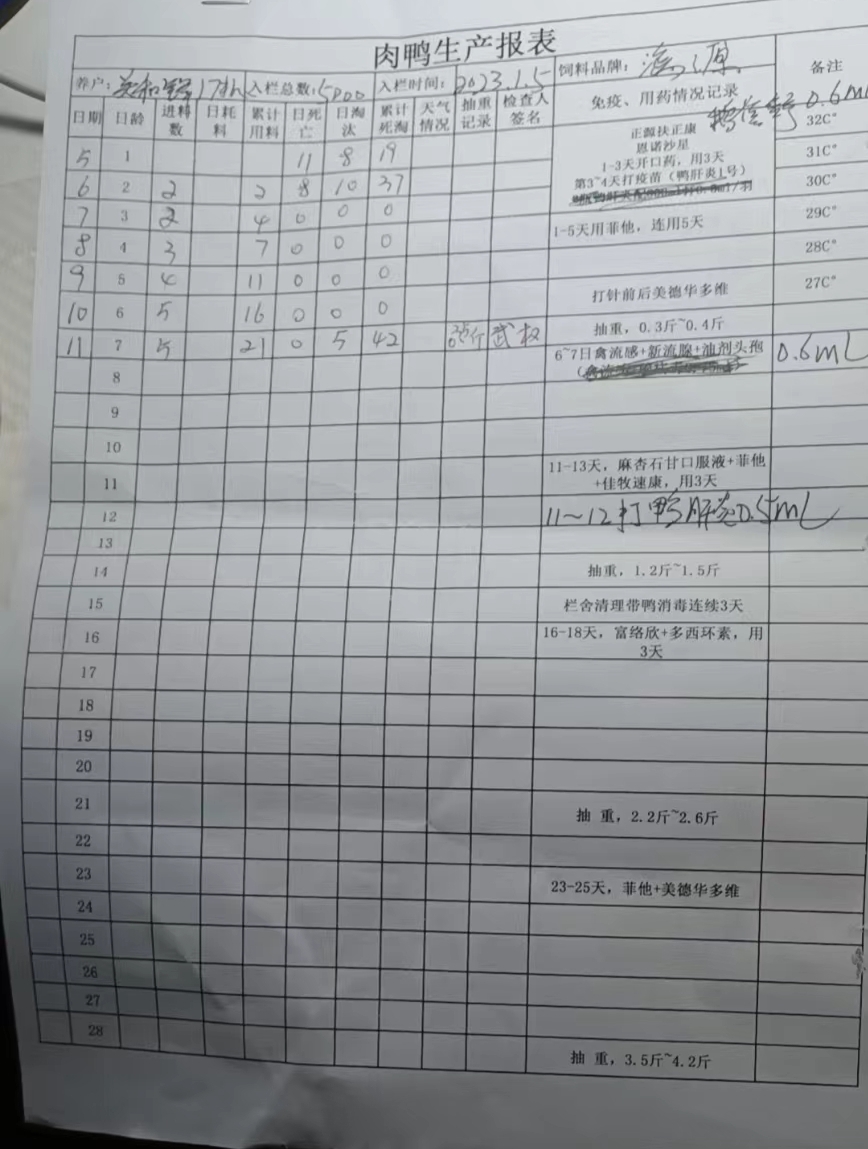 肉鸭生产报表
养户: 入栏总数:5000 入栏时间:2023.1.5 饲料品牌: 备注
日期 日龄 进料数 日耗料 累计用料 日死亡 日淘汰 累计死淘 天气情况 抽重记录 检查人签名 免疫、用药情况记录 0.6mL
正源扶正康 32C°
恩诺沙星
5 1 11 8 19 1-3天开口药，用3天 31C°
第3~4天打疫苗（鸭肝炎1号）
6 2 2 2 8 10 37 30C°
7 3 2 4 0 0 0 1-5天用菲他，连用5天 29C°
8 4 3 7 0 0 0 28C°
9 5 4 11 0 0 0 打针前后美德华多维 27C°
10 6 5 16 0 0 0 抽重，0.3斤~0.4斤
11 7 5 21 0 5 42 武权 6~7日禽流感+新流腺+油剂头孢 0.6mL
8
9
10
11 11-13天，麻杏石甘口服液+菲他
+佳牧速康，用3天
12 11~12打鸭肝炎0.5mL
13
14 抽重，1.2斤~1.5斤
15 栏舍清理带鸭消毒连续3天
16 16-18天，富络欣+多西环素，用
3天
17
18
19
20
21 抽 重，2.2斤~2.6斤
22
23 23-25天，菲他+美德华多维
24
25
26
27
28 抽 重，3.5斤~4.2斤